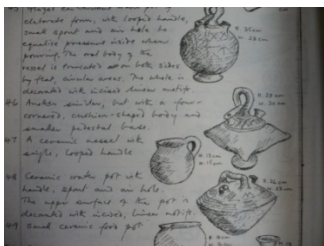 elaborate form, with looped handle,
small spout and air hole to
equalise pressure inside when
pouring. The oval body of the
vessel is truncated on both sides
by flat, circular areas. The whole is
decorated with incised linear motifs.
46 Another similar, but with a four-
cornered, cushion-shaped body and
smaller pedestal base.
47 A ceramic vessel with
single, looped handle
48 Ceramic water pot with
handle, spout and air hole.
The upper surface of the pot is
decorated with incised, linear motifs.
49 Small ceramic food pot